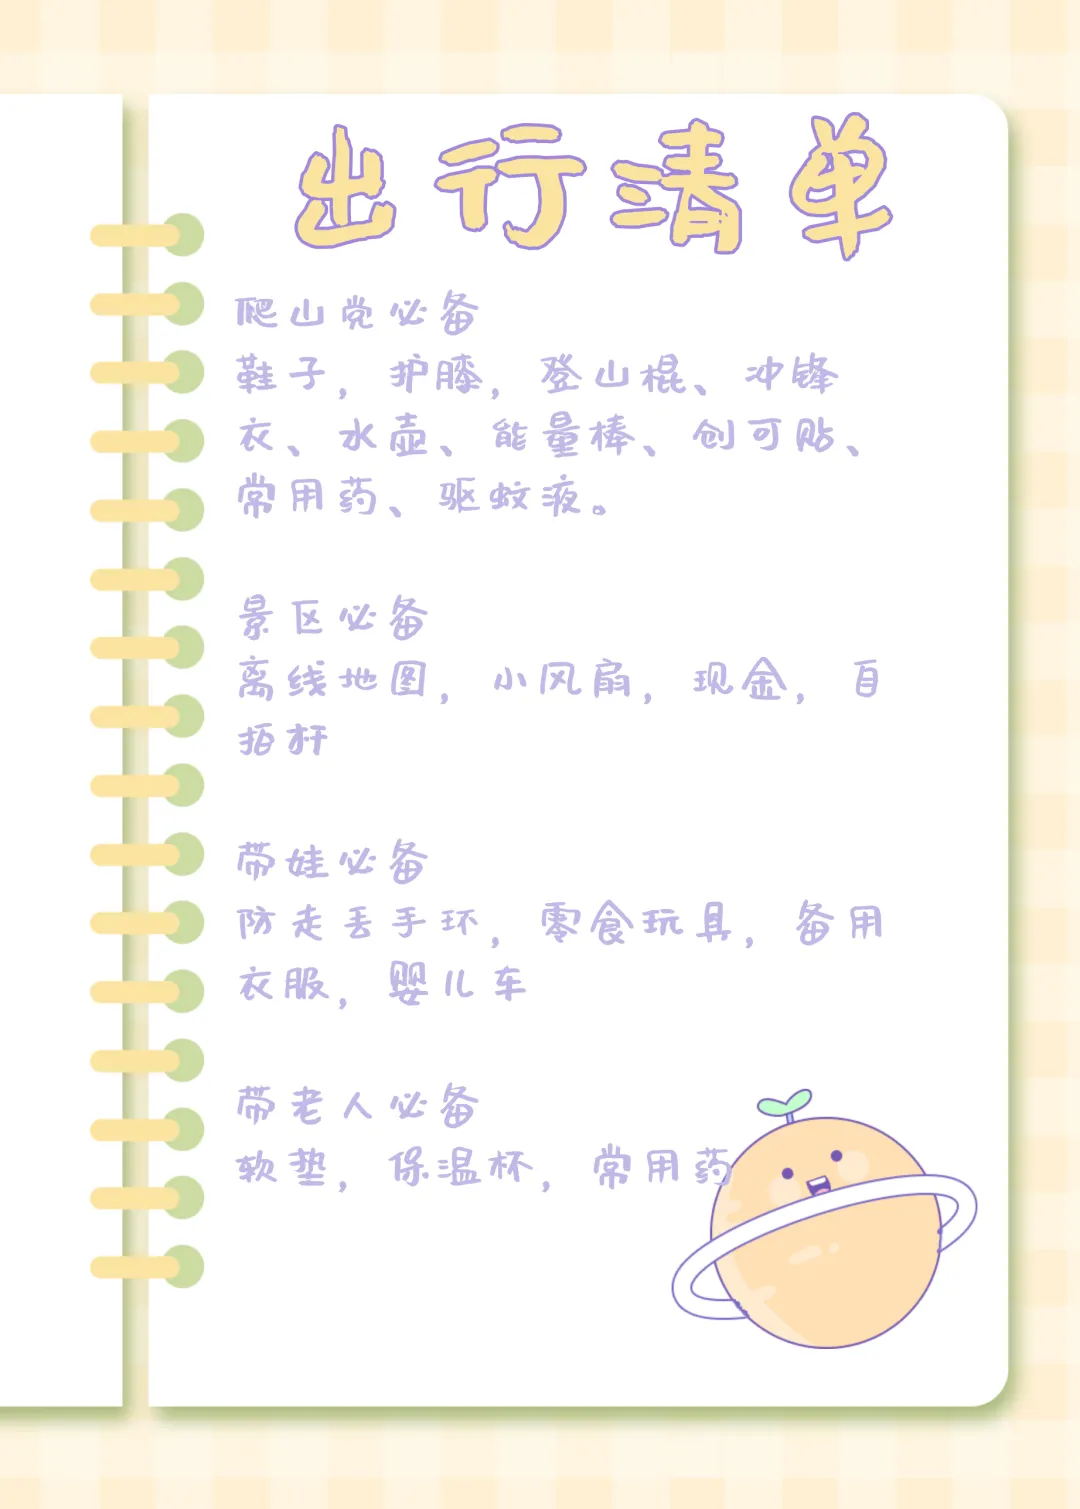 出行清单
爬山党必备
鞋子，护膝，登山棍、冲锋
衣、水壶、能量棒、创可贴、
常用药、驱蚊液。
景区必备
离线地图，小风扇，现金，自
拍杆
带娃必备
防走丢手环，零食玩具，备用
衣服，婴儿车
带老人必备
软垫，保温杯，常用药